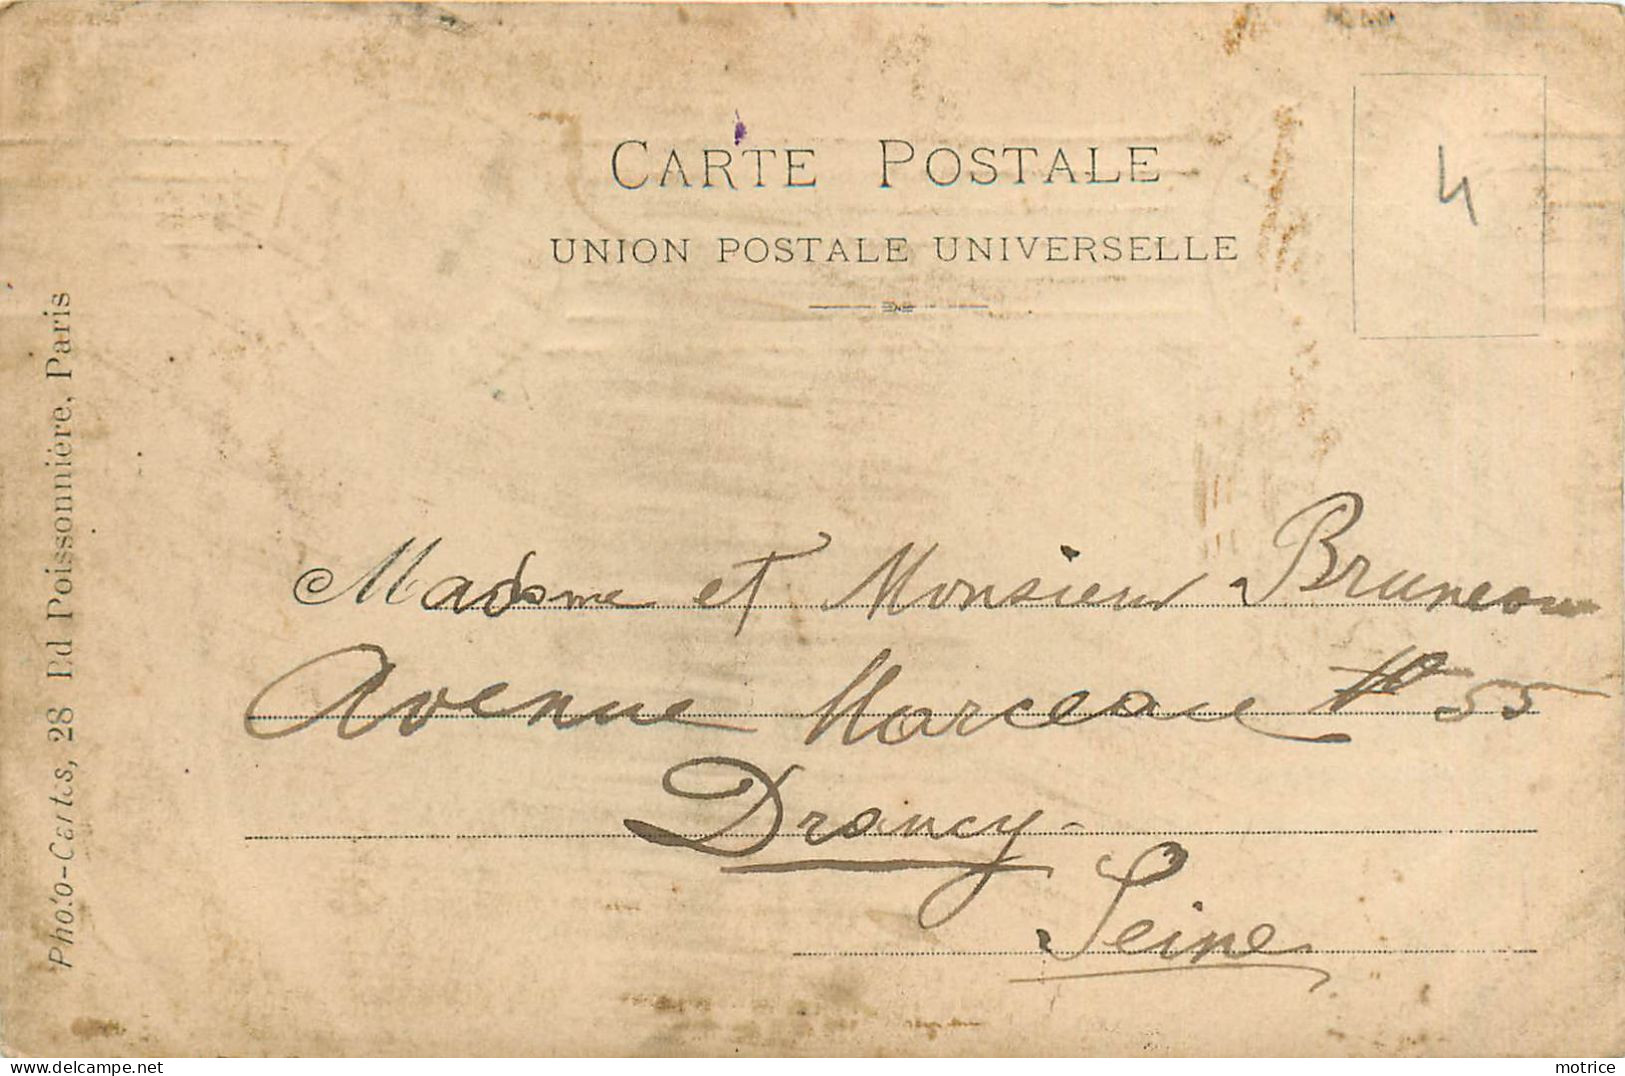 CARTE POSTALE
UNION POSTALE UNIVERSELLE
4
Photo-Cartes, 28 Bd Poissonnière, Paris
Madame et Monsieur Bruneau
Avenue Marceau No 55
Drancy-
Seine
delcampe.net
motrice